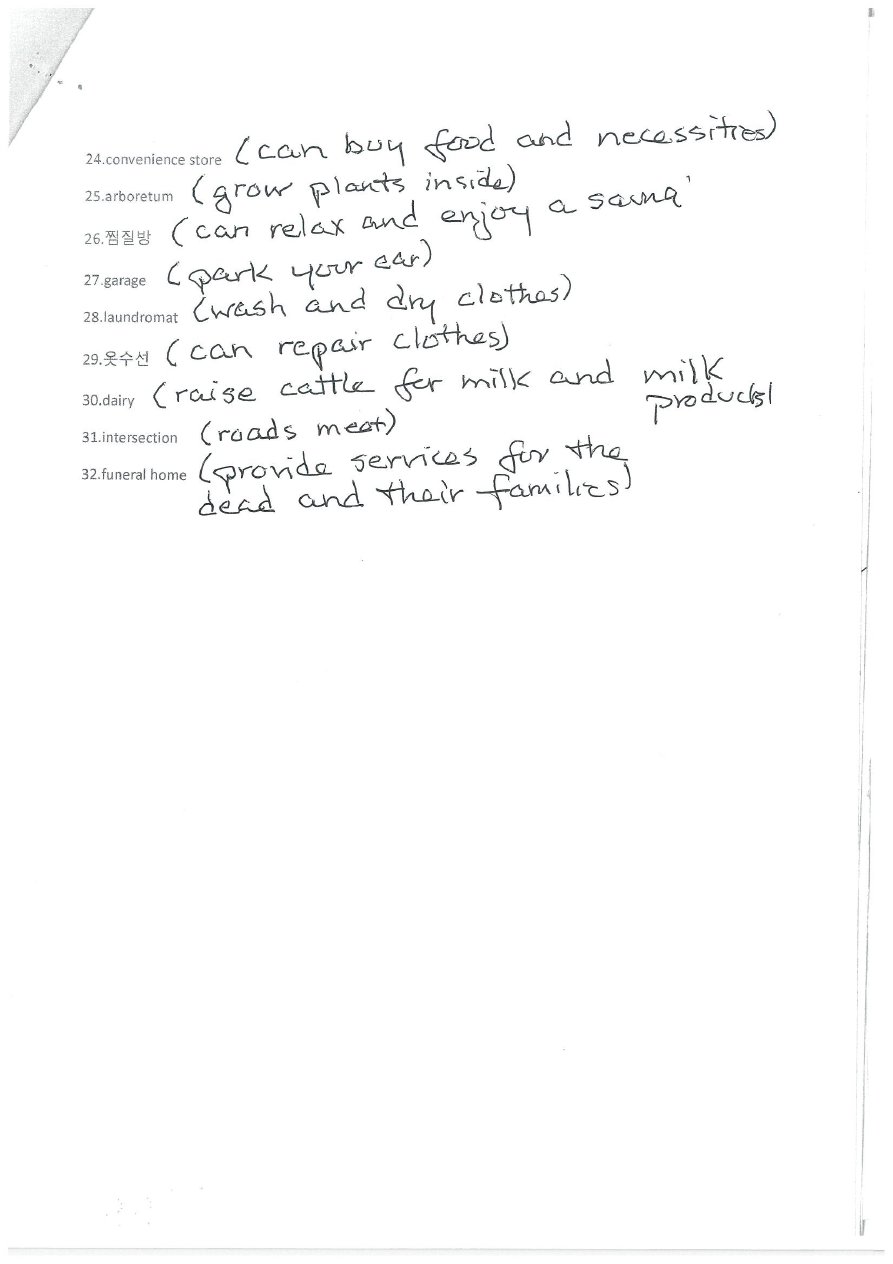 24.convenience store (can buy food and necessities)
25.arboretum (grow plants inside)
26.찜질방 (can relax and enjoy a sauna'
27.garage (park your car)
28.laundromat (wash and dry clothes)
29.옷수선 (can repair clothes)
30.dairy (raise cattle for milk and milk
products)
31.intersection (roads meet)
32.funeral home (provide services for the
dead and their families)